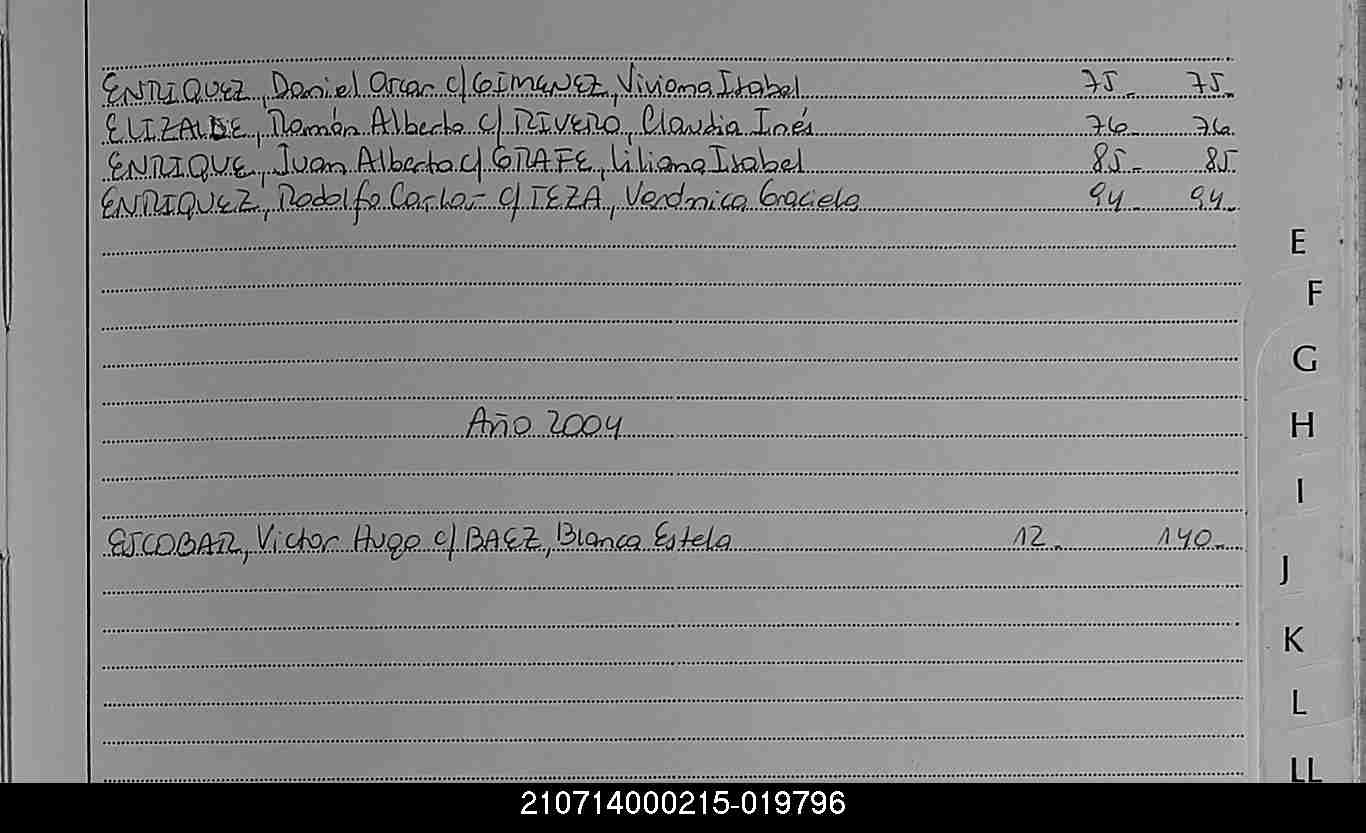 ENRIQUEZ, Daniel Oscar c/ GIMENEZ, Viviana Isabel 75- 75-
ELIZALDE, Ramón Alberto c/ RIVERO, Claudia Inés 76- 76-
ENRIQUE, Juan Alberto c/ GRAFE, Liliana Isabel 85- 85-
ENRIQUEZ, Rodolfo Carlos- c/ TEZA, Verónica Graciela 94- 94-
E
F
G
Año 2004
H
I
ESCOBAR, Victor Hugo c/ BAEZ, Blanca Estela 12- 140-
J
K
L
LL
210714000215-019796